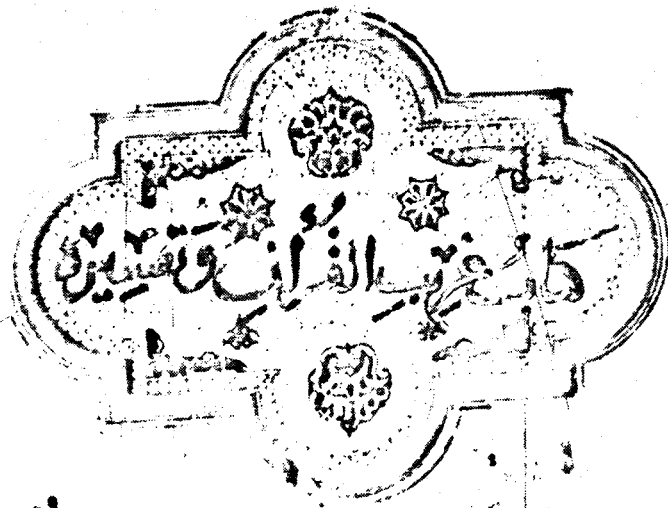 كتاب غريب القرآن وتفسيره